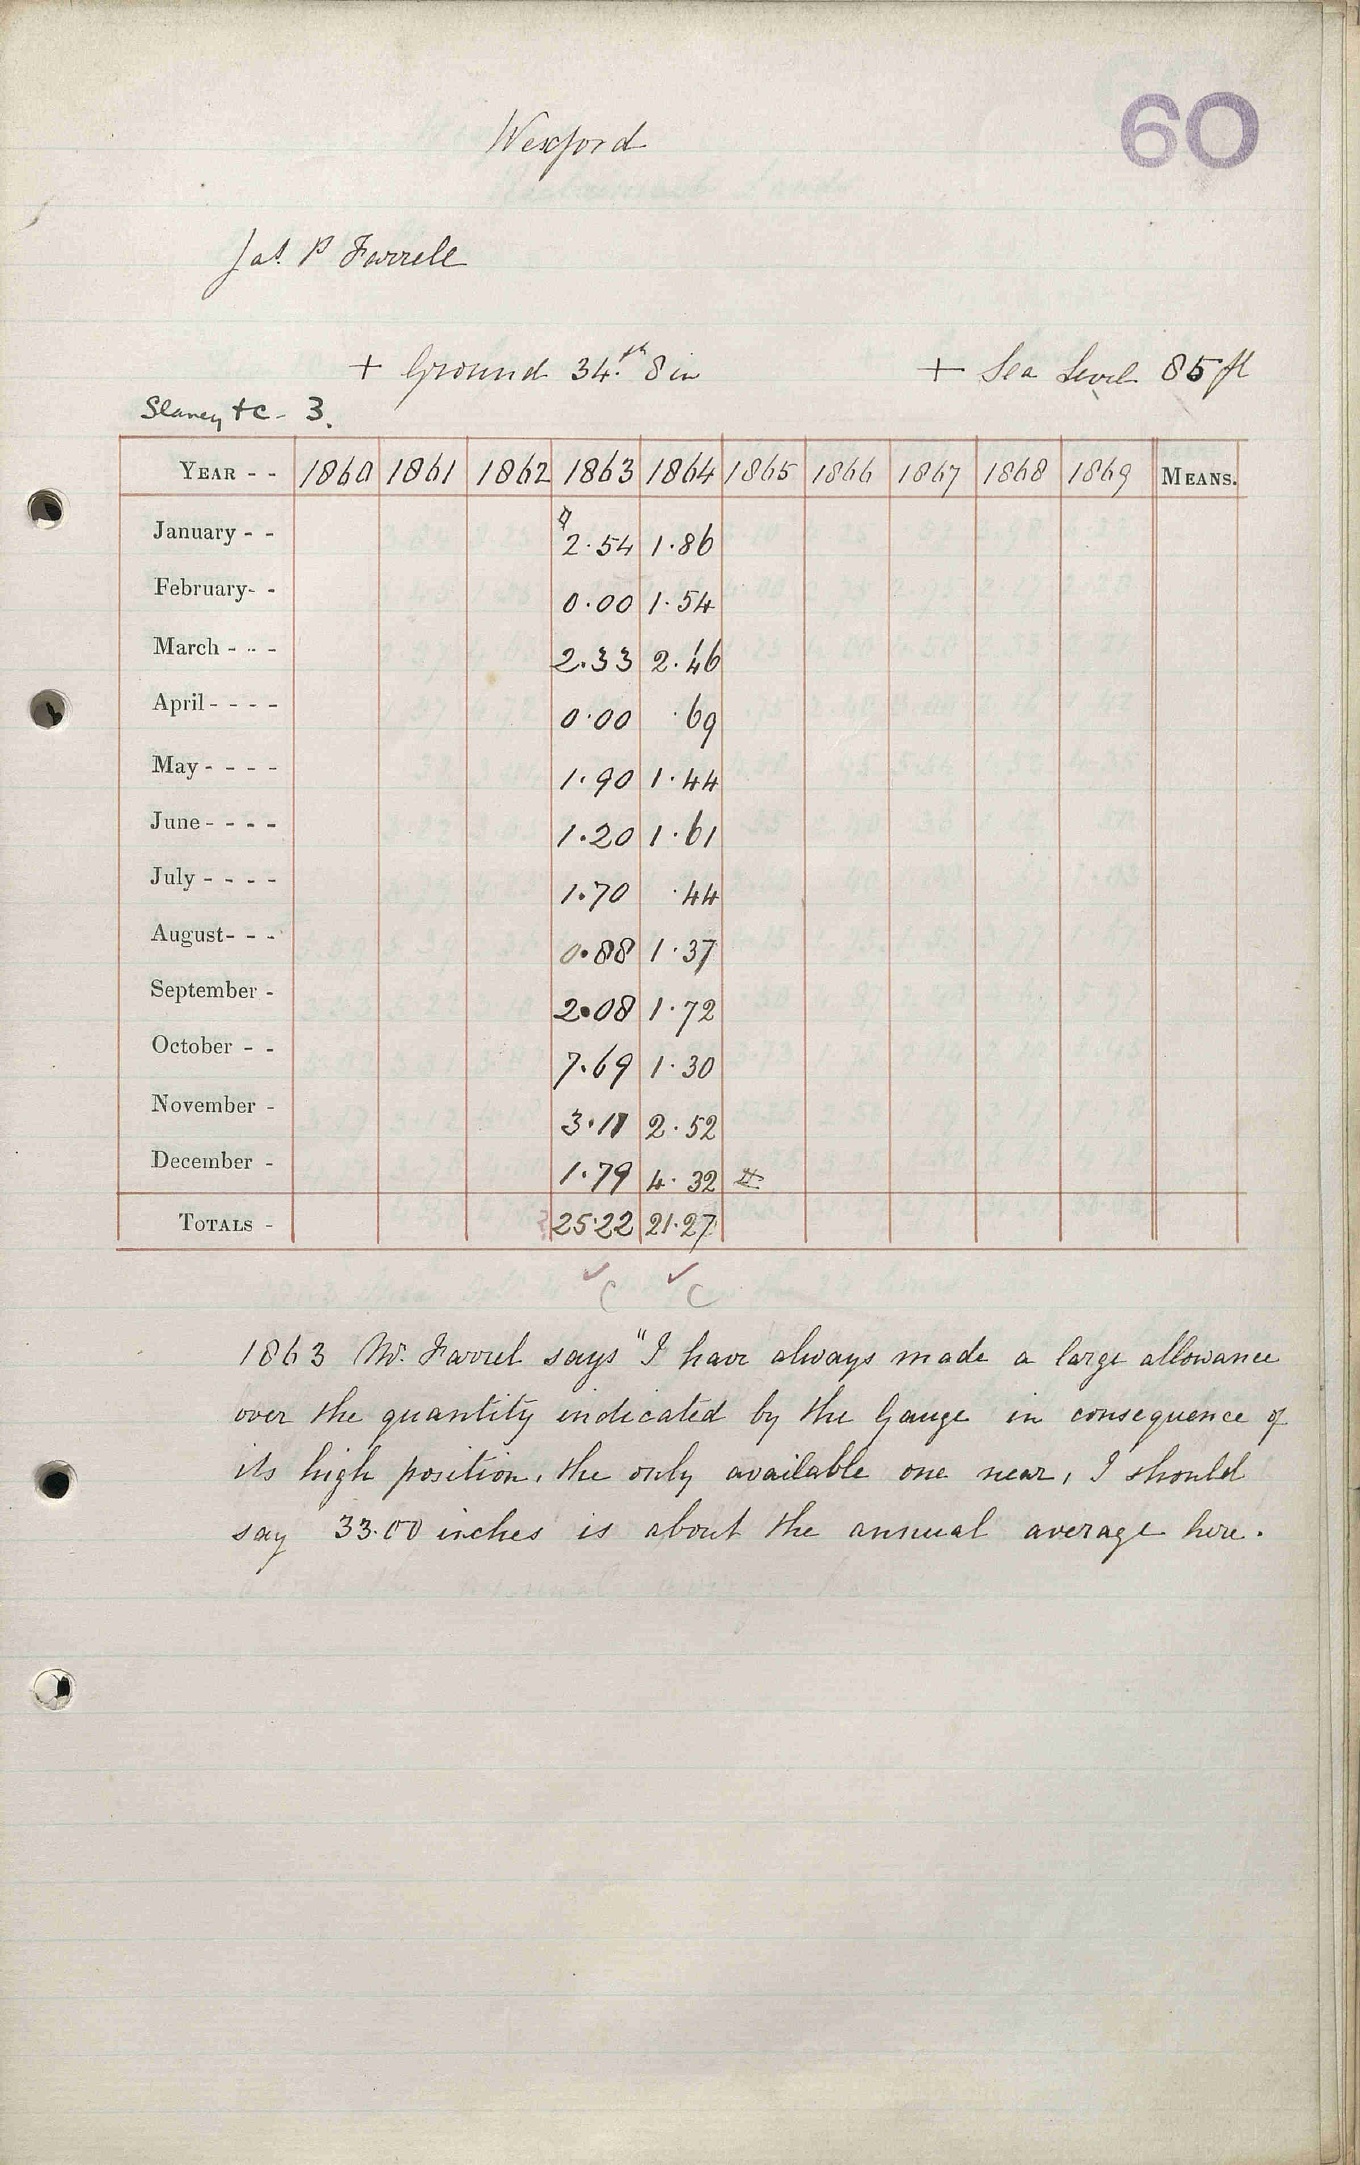 60
Wexford
Jas. P Farrell
+ Ground 34.ft 8 in + Sea Level 85 ft
Slaney &c - 3.
YEAR - - 1860 1861 1862 1863 1864 1865 1866 1867 1868 1869 MEANS.
January - - 2.54 1.86
February- - 0.00 1.54
March - - - 2.33 2.46
April - - - - 0.00 .69
May - - - - 1.90 1.44
June - - - - 1.20 1.61
July - - - - 1.70 .44
August- - - 0.88 1.37
September - 2.08 1.72
October - - 7.69 1.30
November - 3.11 2.52
December - 1.79 4.32
TOTALS - 25.22 21.27
✓ C ✓ C
1863 Mr. Farrel says "I have always made a large allowance
over the quantity indicated by the Gauge in consequence of
its high position, the only available one near, I should
say 33.00 inches is about the annual average here.